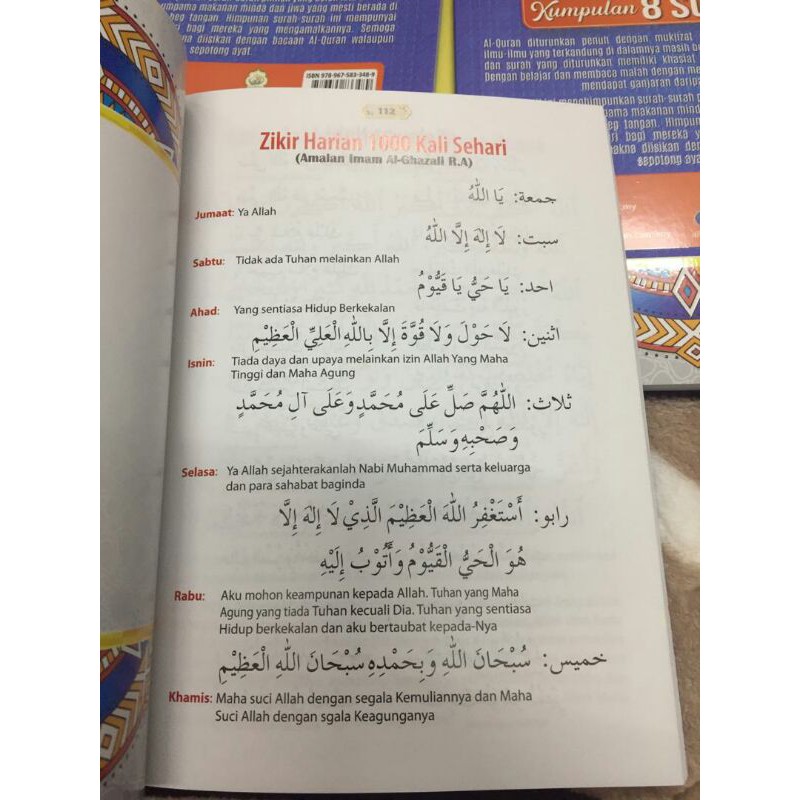 umpama makanan minda dan jiwa yang mesti berada di
tangan. Himpunan surah-surah ini mempunyai
bagi mereka yang mengamalkannya. Semoga
diisikan dengan bacaan Al-Quran walaupun
sepotong ayat
ISBN 978-967-583-348-9
Kumpulan 8 SU
Al-Quran diturunkan penuh dengan mukjizat
ilmu-ilmu yang terkandung di dalamnya masih b
dan surah yang diturunkan memiliki khasiat
Dengan belajar dan membaca malah dengan me
mendapat ganjaran darip
menghimpunkan surah-surah p
makanan mind
tangan. Himpun
bagi mereka y
diisikan den
sepotong ay
112
Zikir Harian 1000 Kali Sehari
(Amalan Imam Al-Ghazali R.A)
جمعة: يَا اللهُ
Jumaat: Ya Allah
سبت: لَا إِلٰهَ إِلَّا اللهُ
Sabtu: Tidak ada Tuhan melainkan Allah
احد: يَا حَيُّ يَا قَيُّوْمُ
Ahad: Yang sentiasa Hidup Berkekalan
اثنين: لَا حَوْلَ وَلَا قُوَّةَ إِلَّا بِاللهِ الْعَلِيِّ الْعَظِيْمِ
Isnin: Tiada daya dan upaya melainkan izin Allah Yang Maha
Tinggi dan Maha Agung
ثلاث: اللّٰهُمَّ صَلِّ عَلَى مُحَمَّدٍ وَعَلَى آلِ مُحَمَّدٍ
وَصَحْبِهِ وَسَلِّمَ
Selasa: Ya Allah sejahterakanlah Nabi Muhammad serta keluarga
dan para sahabat baginda
رابو: أَسْتَغْفِرُ اللهَ الْعَظِيْمَ الَّذِيْ لَا إِلٰهَ إِلَّا
هُوَ الْحَيُّ الْقَيُّوْمُ وَأَتُوْبُ إِلَيْهِ
Rabu: Aku mohon keampunan kepada Allah. Tuhan yang Maha
Agung yang tiada Tuhan kecuali Dia. Tuhan yang sentiasa
Hidup berkekalan dan aku bertaubat kepada-Nya
خميس: سُبْحَانَ اللهِ وَبِحَمْدِهِ سُبْحَانَ اللهِ الْعَظِيْمِ
Khamis: Maha suci Allah dengan segala Kemuliannya dan Maha
Suci Allah dengan sgala Keagunganya